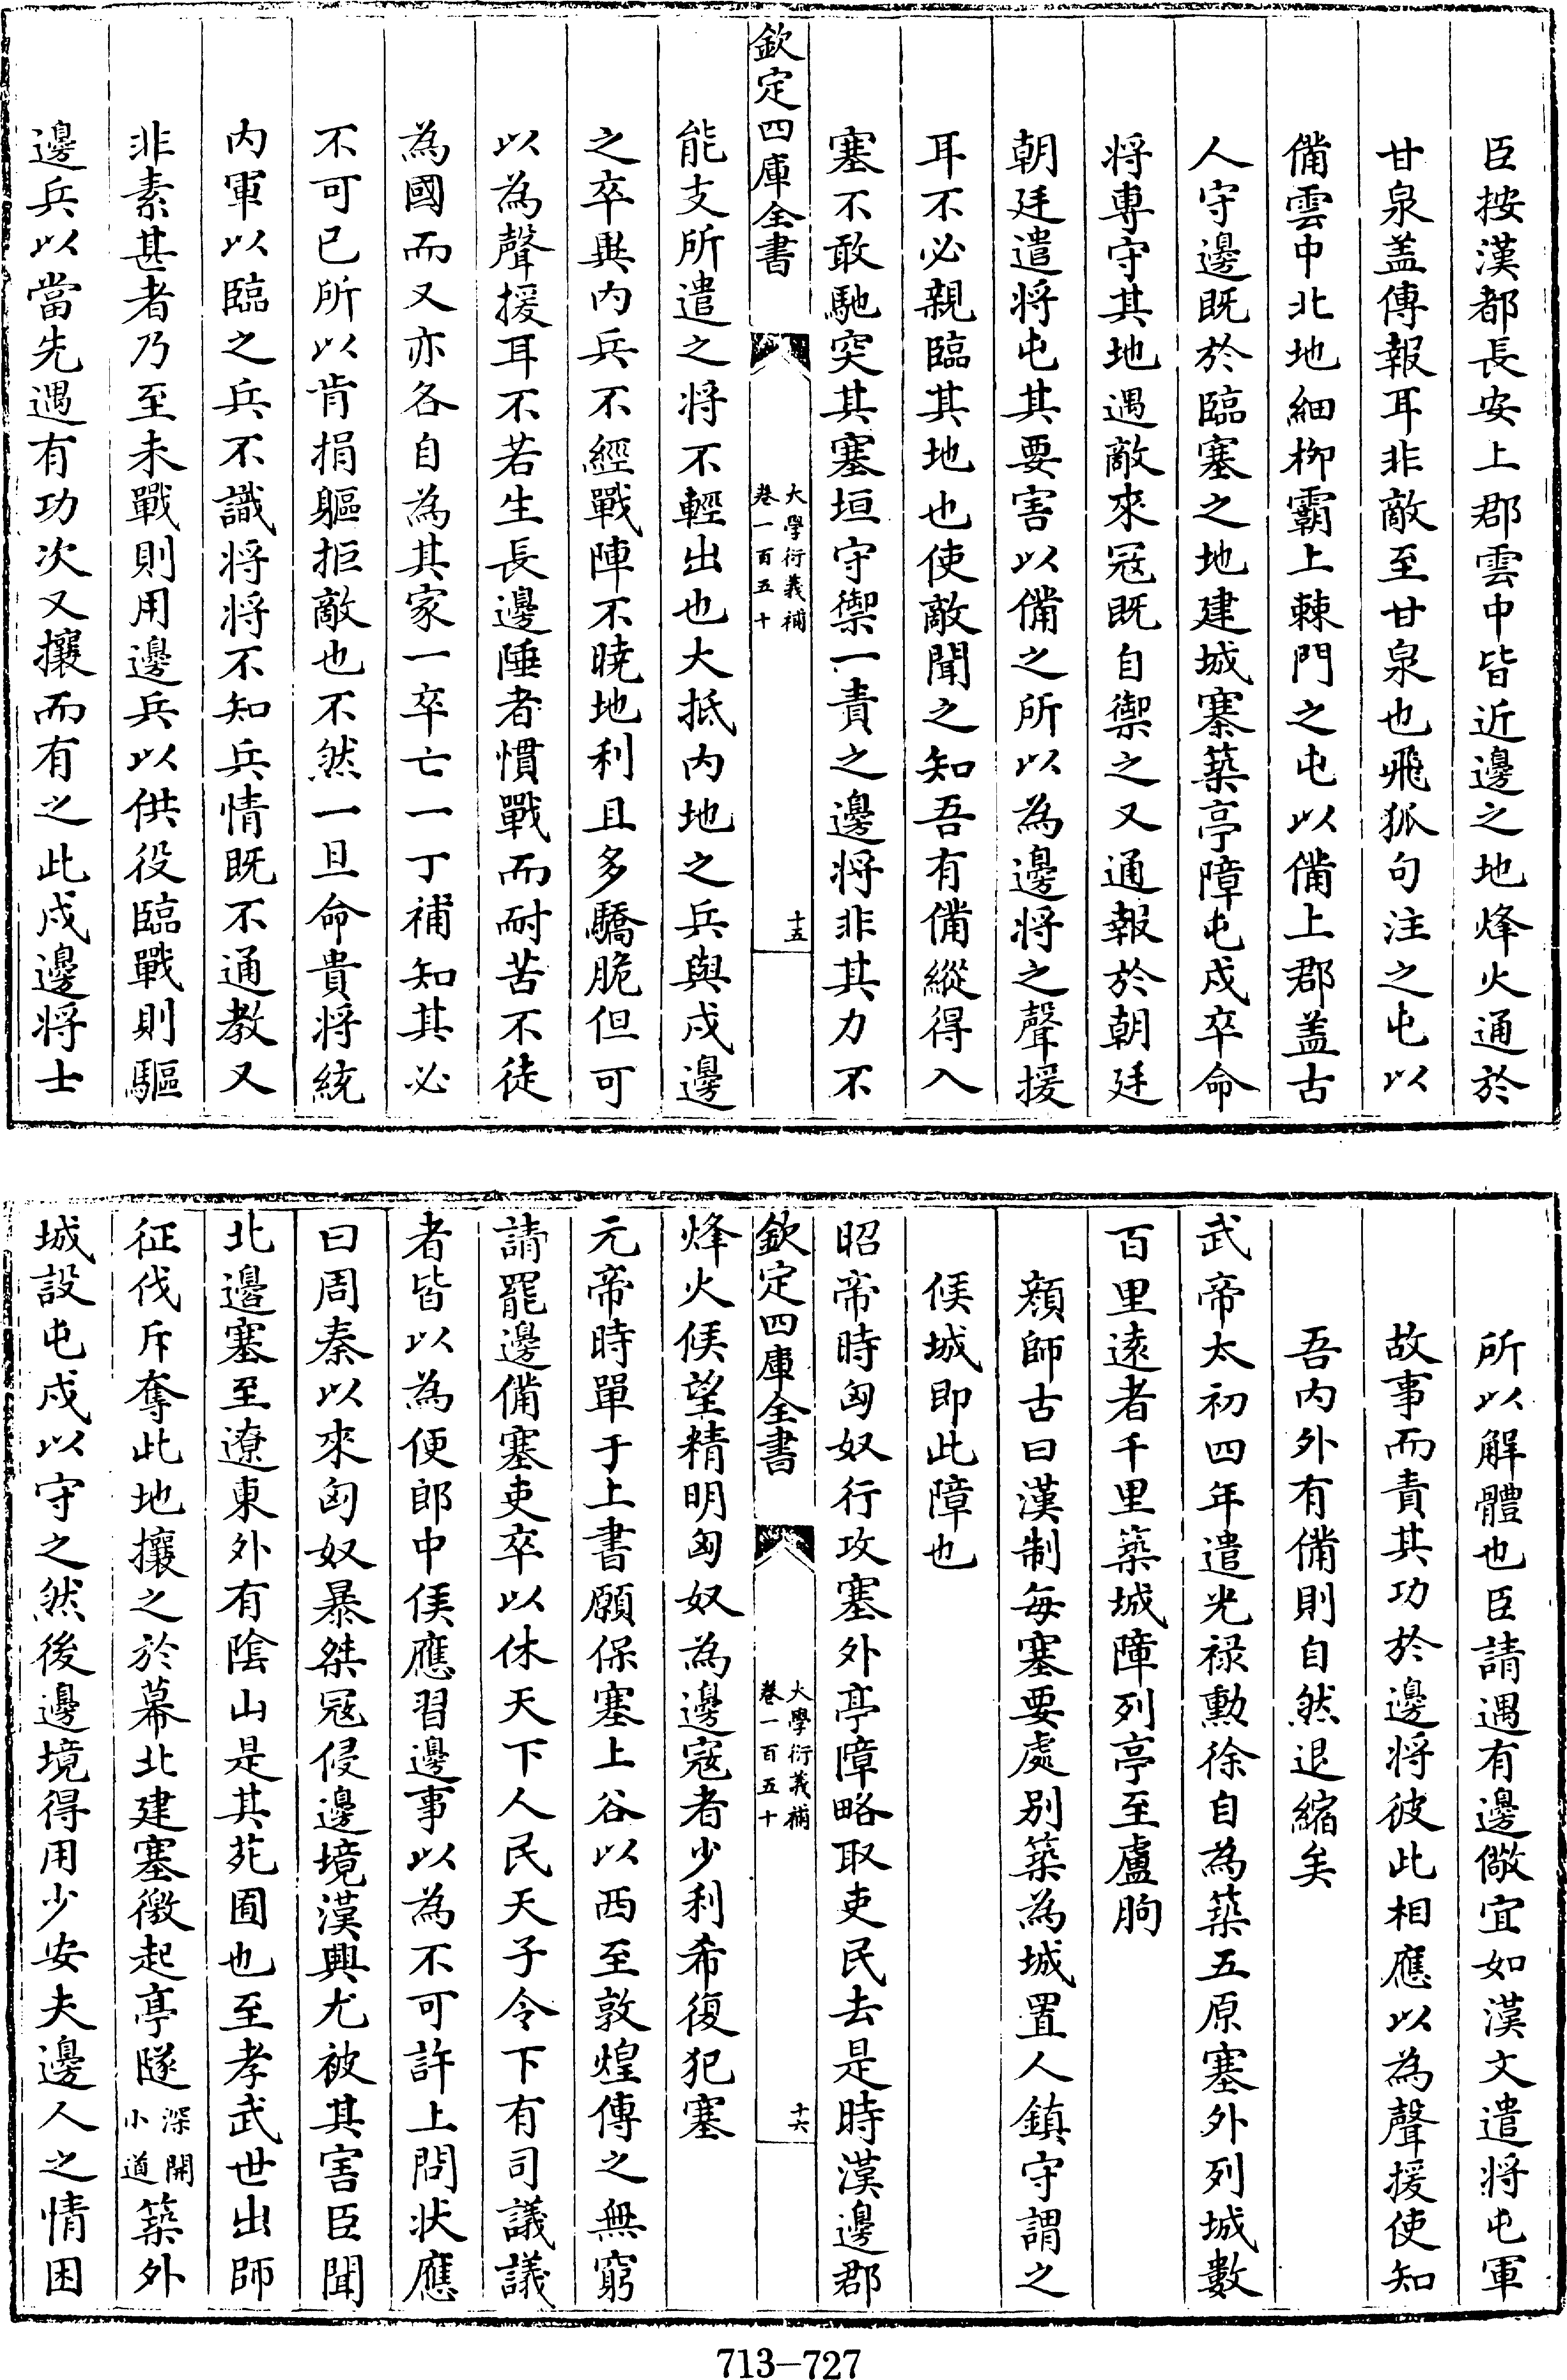 臣按漢都長安上郡雲中皆近邊之地烽火通於
甘泉盖傳報耳非敵至甘泉也飛狐句注之屯以
備雲中北地細栁霸上棘門之屯以備上郡盖古
人守邊既於臨塞之地建城寨築亭障屯戍卒命
将專守其地遇敵來冦既自禦之又通報於朝廷
朝廷遣将屯其要害以備之所以為邊将之聲援
耳不必親臨其地也使敵聞之知吾有備縱得入
塞不敢馳突其塞垣守禦一責之邊将非其力不
欽定四庫全書
大學衍義補
卷一百五十
十五
能支所遣之将不輕出也大抵内地之兵與戍邊
之卒異内兵不經戰陣不曉地利且多驕脆但可
以為聲援耳不若生長邊陲者慣戰而耐苦不徒
為國而又亦各自為其家一卒亡一丁補知其必
不可已所以肯捐軀拒敵也不然一旦命貴将統
内軍以臨之兵不識将将不知兵情既不通教又
非素甚者乃至未戰則用邊兵以供役臨戰則驅
邊兵以當先遇有功次又攘而有之此戍邊将士
所以解體也臣請遇有邊儆宜如漢文遣将屯軍
故事而責其功於邊将彼此相應以為聲援使知
吾内外有備則自然退縮矣
武帝太初四年遣光禄勲徐自為築五原塞外列城數
百里逺者千里築城障列亭至盧朐
顔師古曰漢制每塞要處别築為城置人鎮守謂之
候城即此障也
昭帝時匈奴行攻塞外亭障略取吏民去是時漢邊郡
欽定四庫全書
大學衍義補
卷一百五十
十六
烽火候望精明匈奴為邊寇者少利希復犯塞
元帝時單于上書願保塞上谷以西至敦煌傳之無窮
請罷邊備塞吏卒以休天下人民天子令下有司議議
者皆以為便郎中侯應習邊事以為不可許上問状應
曰周秦以來匈奴暴桀冦侵邊境漢興尤被其害臣聞
北邊塞至遼東外有陰山是其苑囿也至孝武世出師
征伐斥奪此地攘之於幕北建塞徼起亭隧深開小道築外
城設屯戍以守之然後邊境得用少安夫邊人之情困
713-727